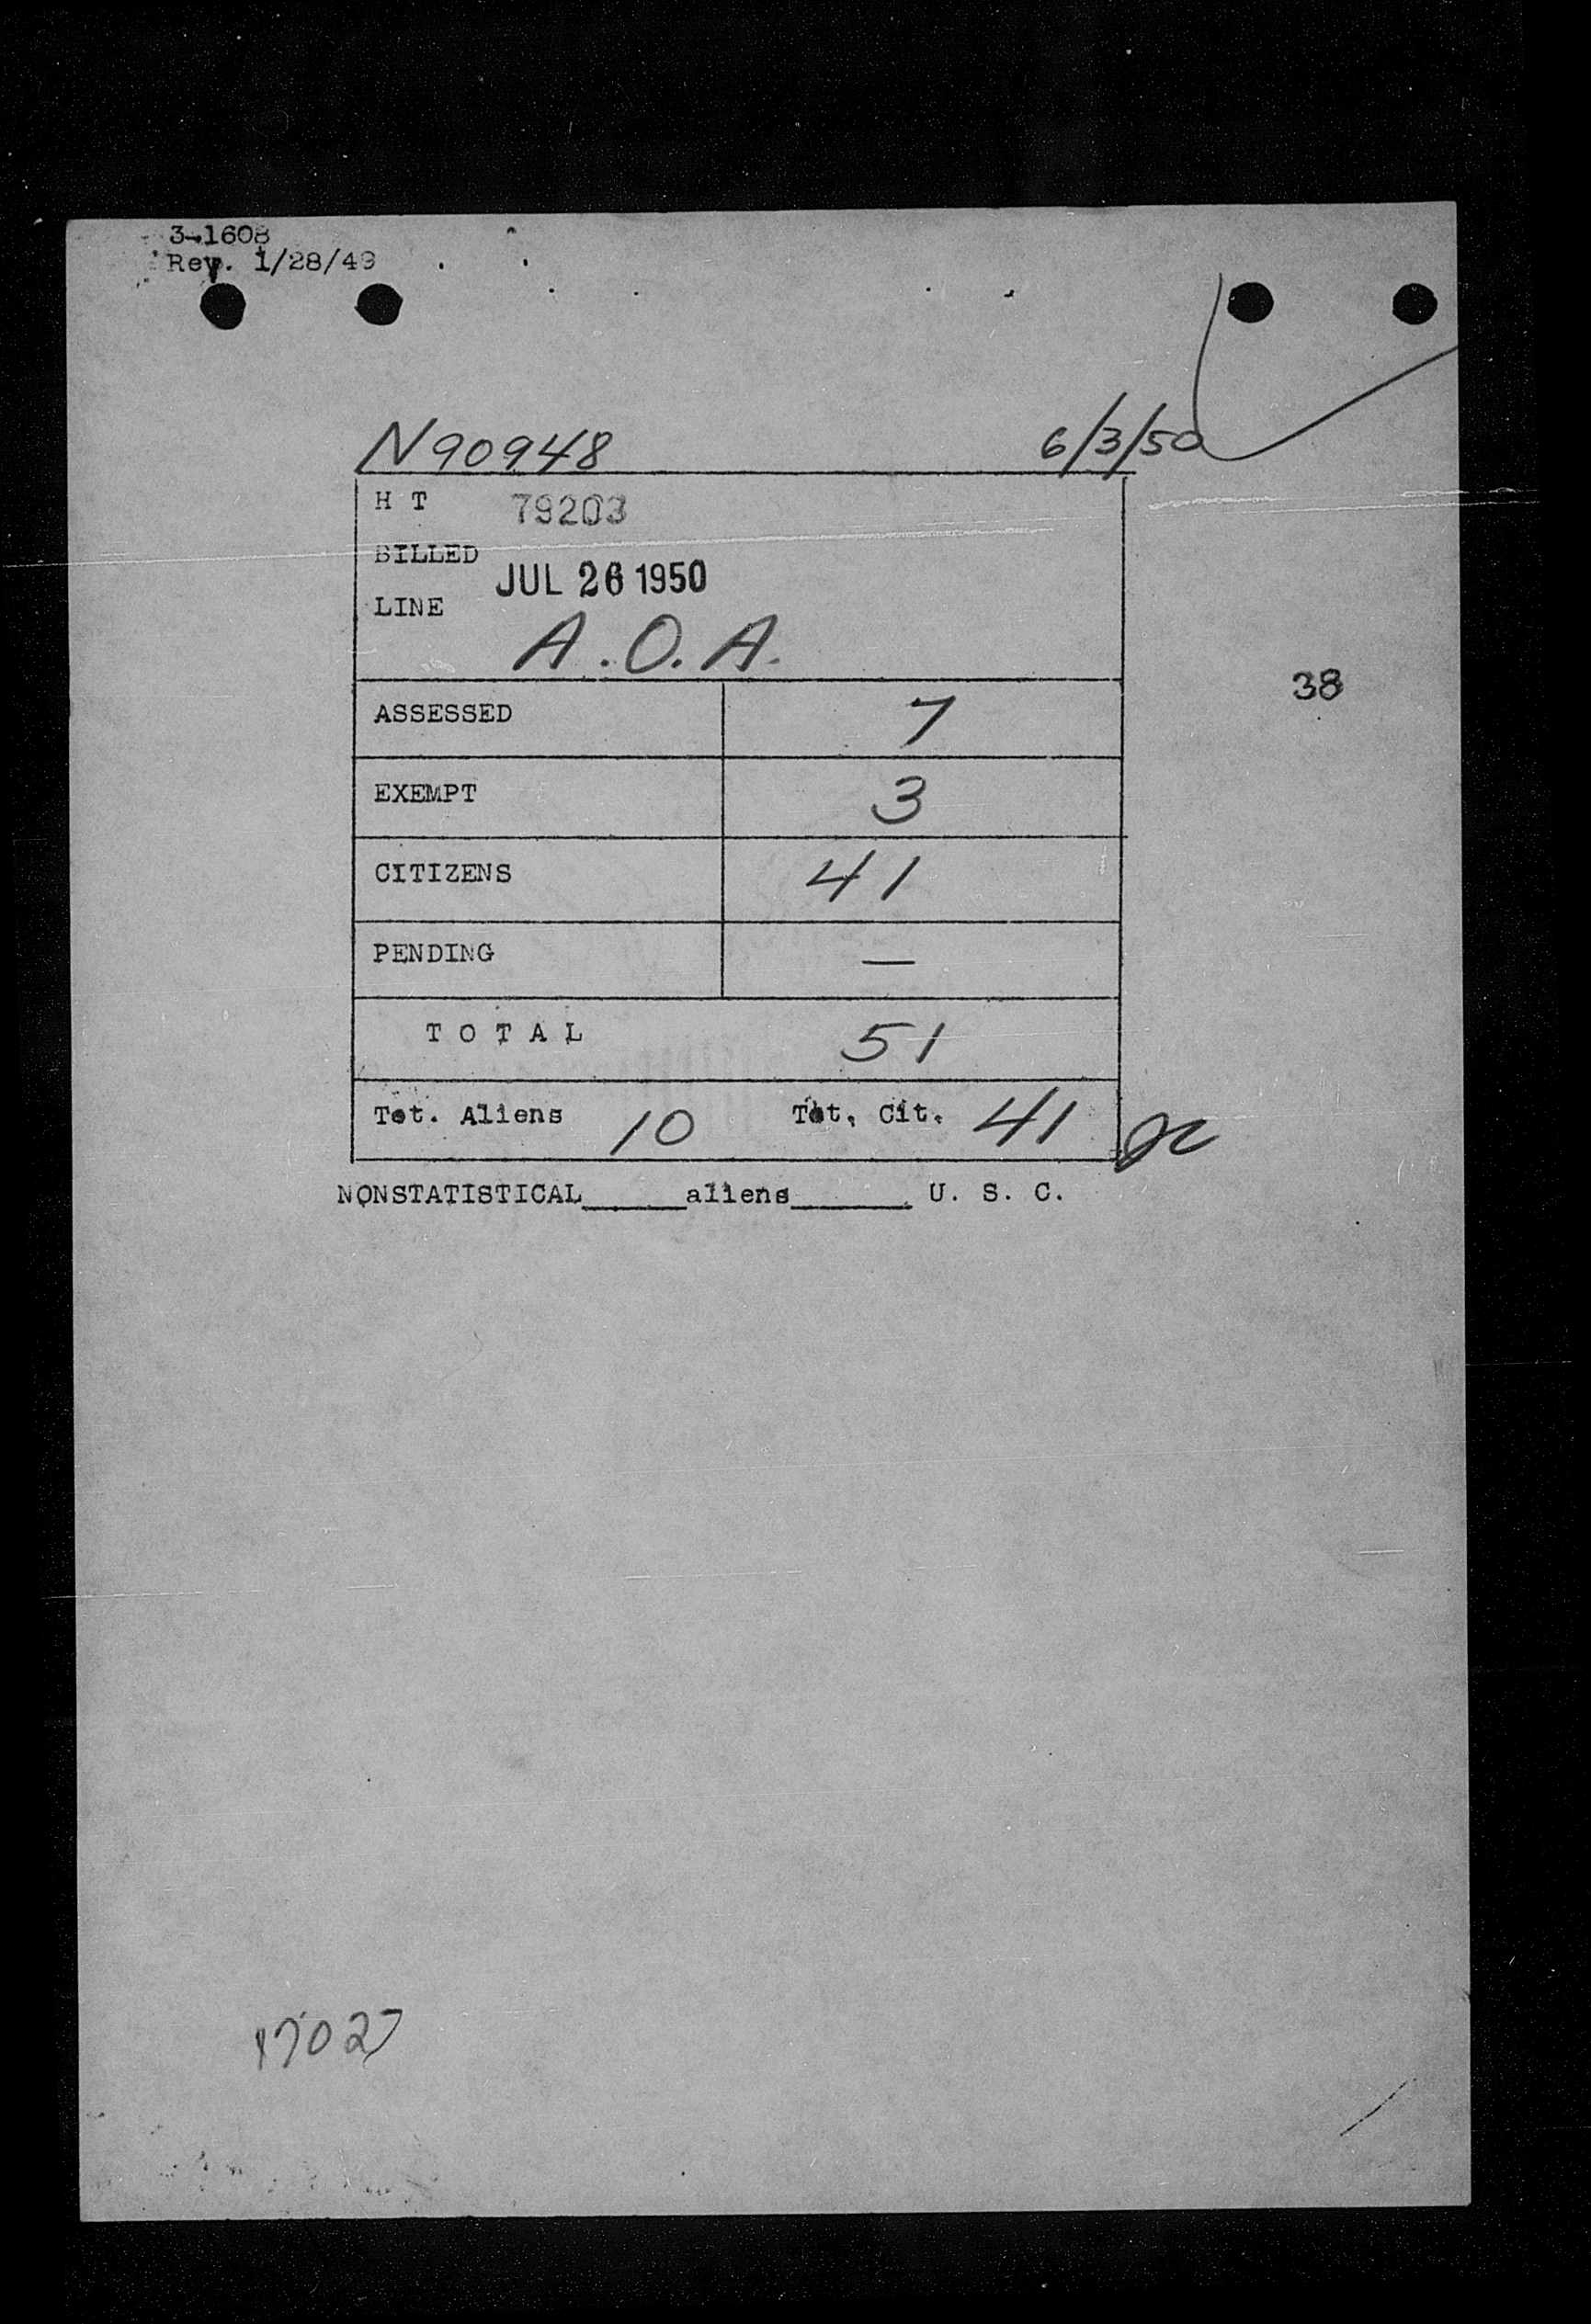 3-1608
Rev. 1/28/49
N90948 6/3/50
H T 79203
BILLED JUL 26 1950
LINE A.O.A.
38
ASSESSED 7
EXEMPT 3
CITIZENS 41
PENDING —
T O T A L 51
Tot. Aliens 10 Tot. Cit. 41
NONSTATISTICAL_____aliens______ U. S. C.
17027